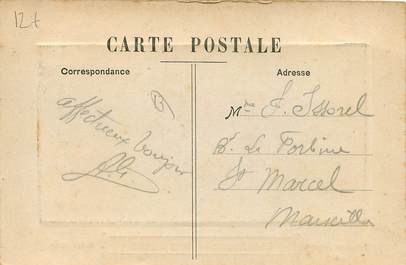 12€
CARTE POSTALE
Correspondance
Adresse
affectueux bonjour
Mme E. Issorel
Bd La Forbine
St Marcel
Marseille